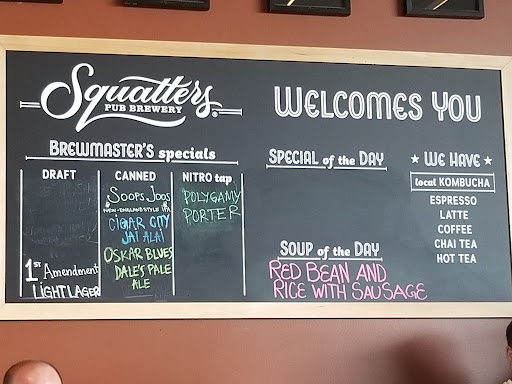 Squatters
PUB BREWERY
WELCOMES YOU
BREWMASTER'S specials
DRAFT
1ST Amendment
LIGHT LAGER
CANNED
SOOPS JOOS
NEW-ENGLAND STYLE IPA
CIGAR CITY
JAI ALAI
OSKAR BLUES
DALE'S PALE
ALE
NITRO tap
POLYGAMY
PORTER
SPECIAL of the DAY
SOUP of the DAY
RED BEAN AND
RICE WITH SAUSAGE
WE HAVE
local KOMBUCHA
ESPRESSO
LATTE
COFFEE
CHAI TEA
HOT TEA